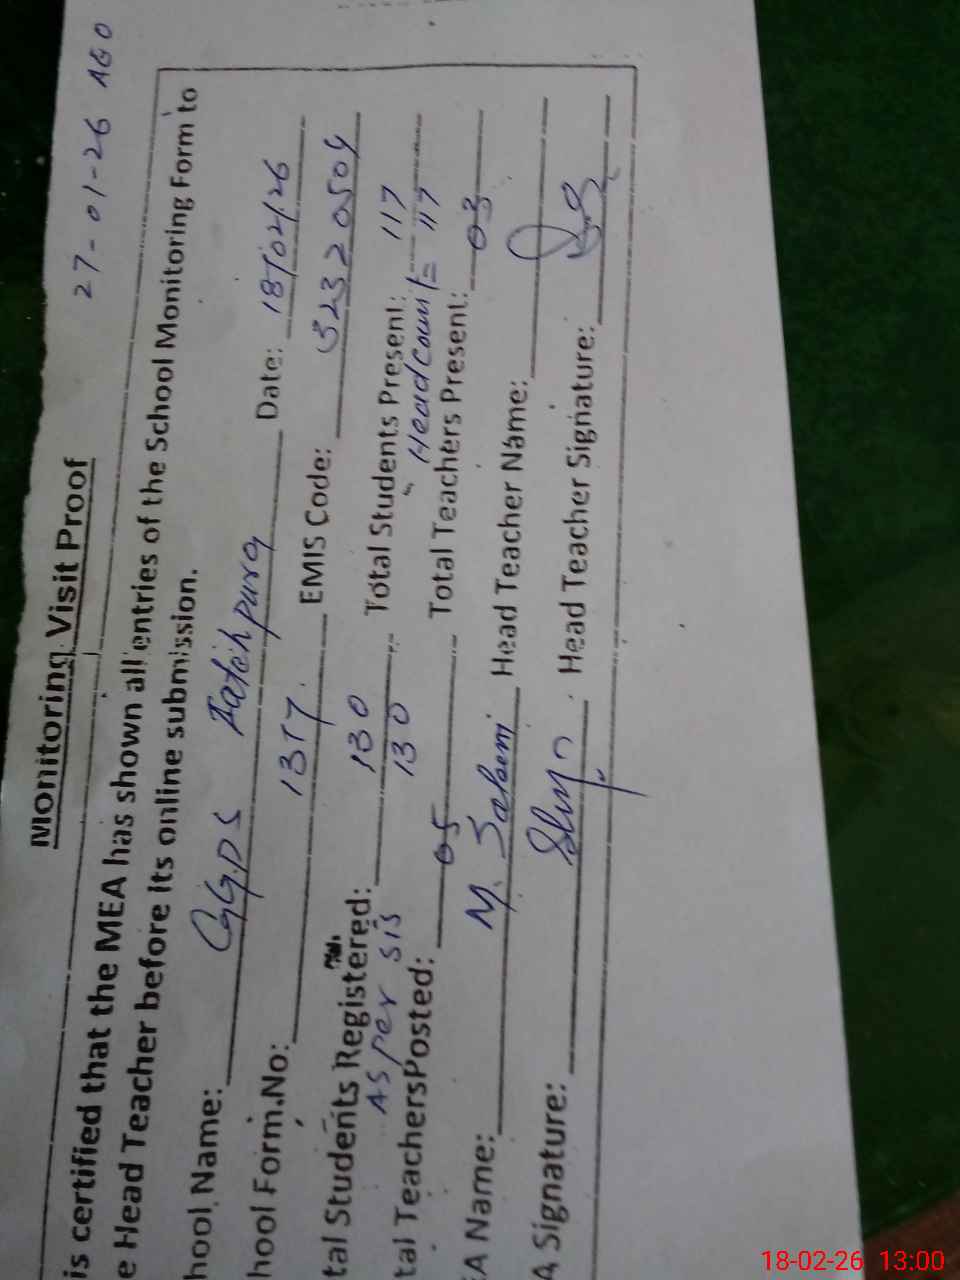 27-01-26 AEO
Monitoring Visit Proof
is certified that the MEA has shown all entries of the School Monitoring Form to
e Head Teacher before its online submission.
hool Name: GGPS Fatehpura Date: 18/02/26
hool Form.No: 1377 EMIS Code: 32320504
tal Students Registered: 130 Total Students Present: 117
As per sis 130 Head Count = 117
tal TeachersPosted: 05 Total Teachers Present: 03
EA Name: M. Saleem Head Teacher Name:
A Signature: Head Teacher Signature:
18-02-26 13:00